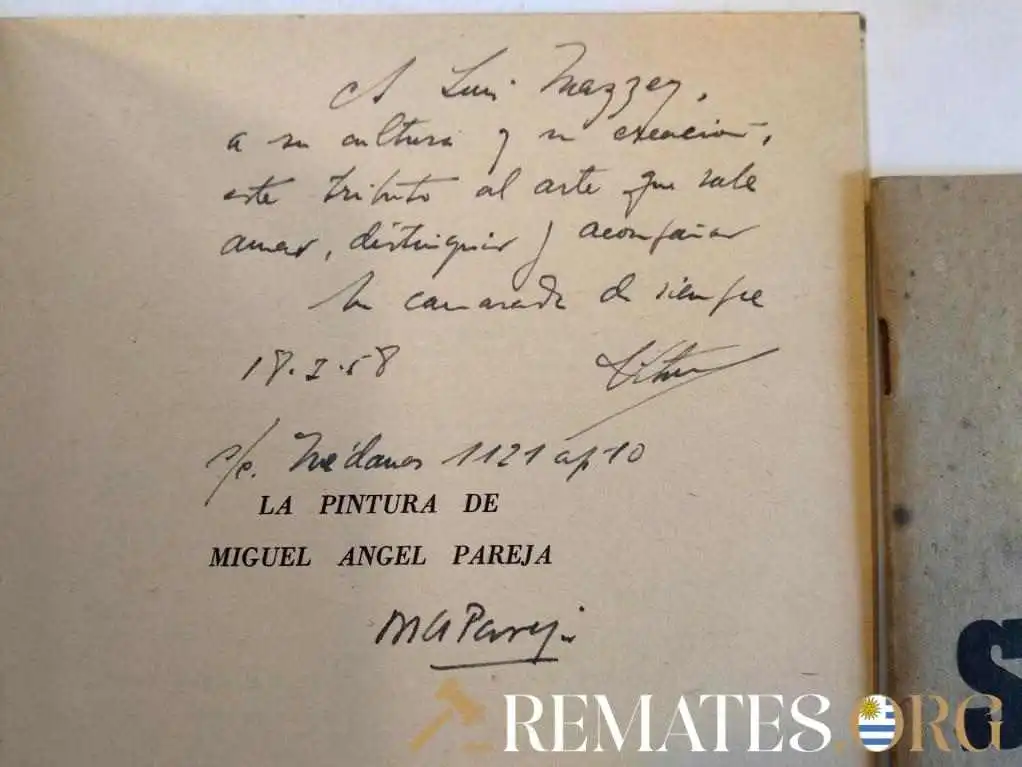 A Luis Mazzey,
a su cultura y su creación,
este tributo al arte que vale
amar, distinguir y acompañar
su camarada de siempre
18.2.58
s/c. Médanos 1121 ap 10
LA PINTURA DE
MIGUEL ANGEL PAREJA
MAPareja
REMATES.ORG
S